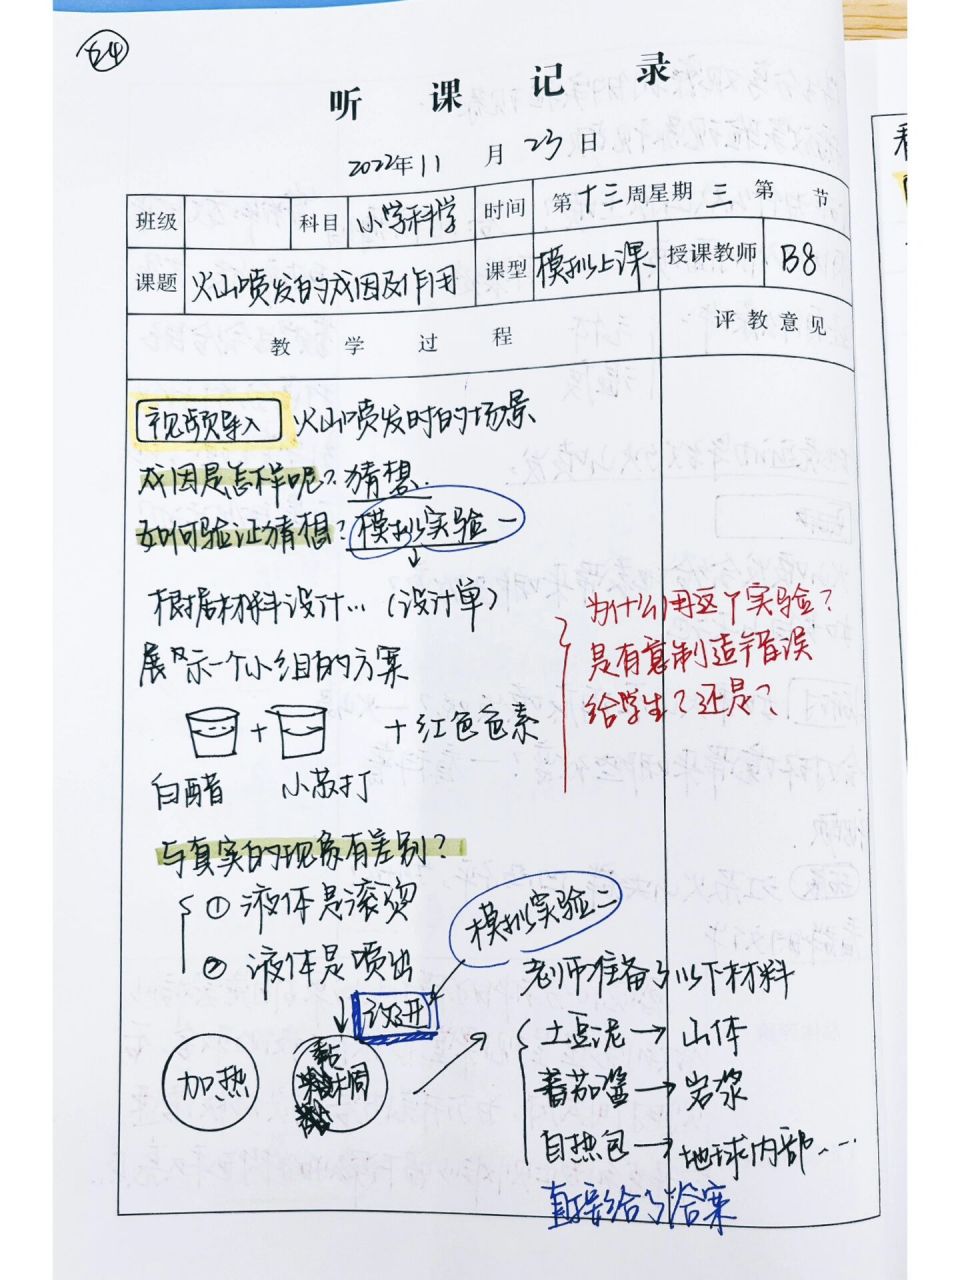 64
听 课 记 录
2022年11月23日
班级 科目 小学科学 时间 第十三周星期三第 节
课题 火山喷发的成因及作用 课型 模拟上课 授课教师 B8
教 学 过 程 评教意见
视频导入 火山喷发时的场景
成因是怎样呢?猜想
如何验证猜想?模拟实验一
根据材料设计…(设计单)
为什么用这个实验?
展示一个小组的方案
是有意制造错误
给学生?还是?
+ +红色色素
白醋 小苏打
与真实的现象有差别?
①液体是滚烫
模拟实验二
②液体是喷出
老师准备了以下材料
改进
土豆泥→山体
加热
番茄酱→岩浆
自热包→地球内部…
直接给了答案